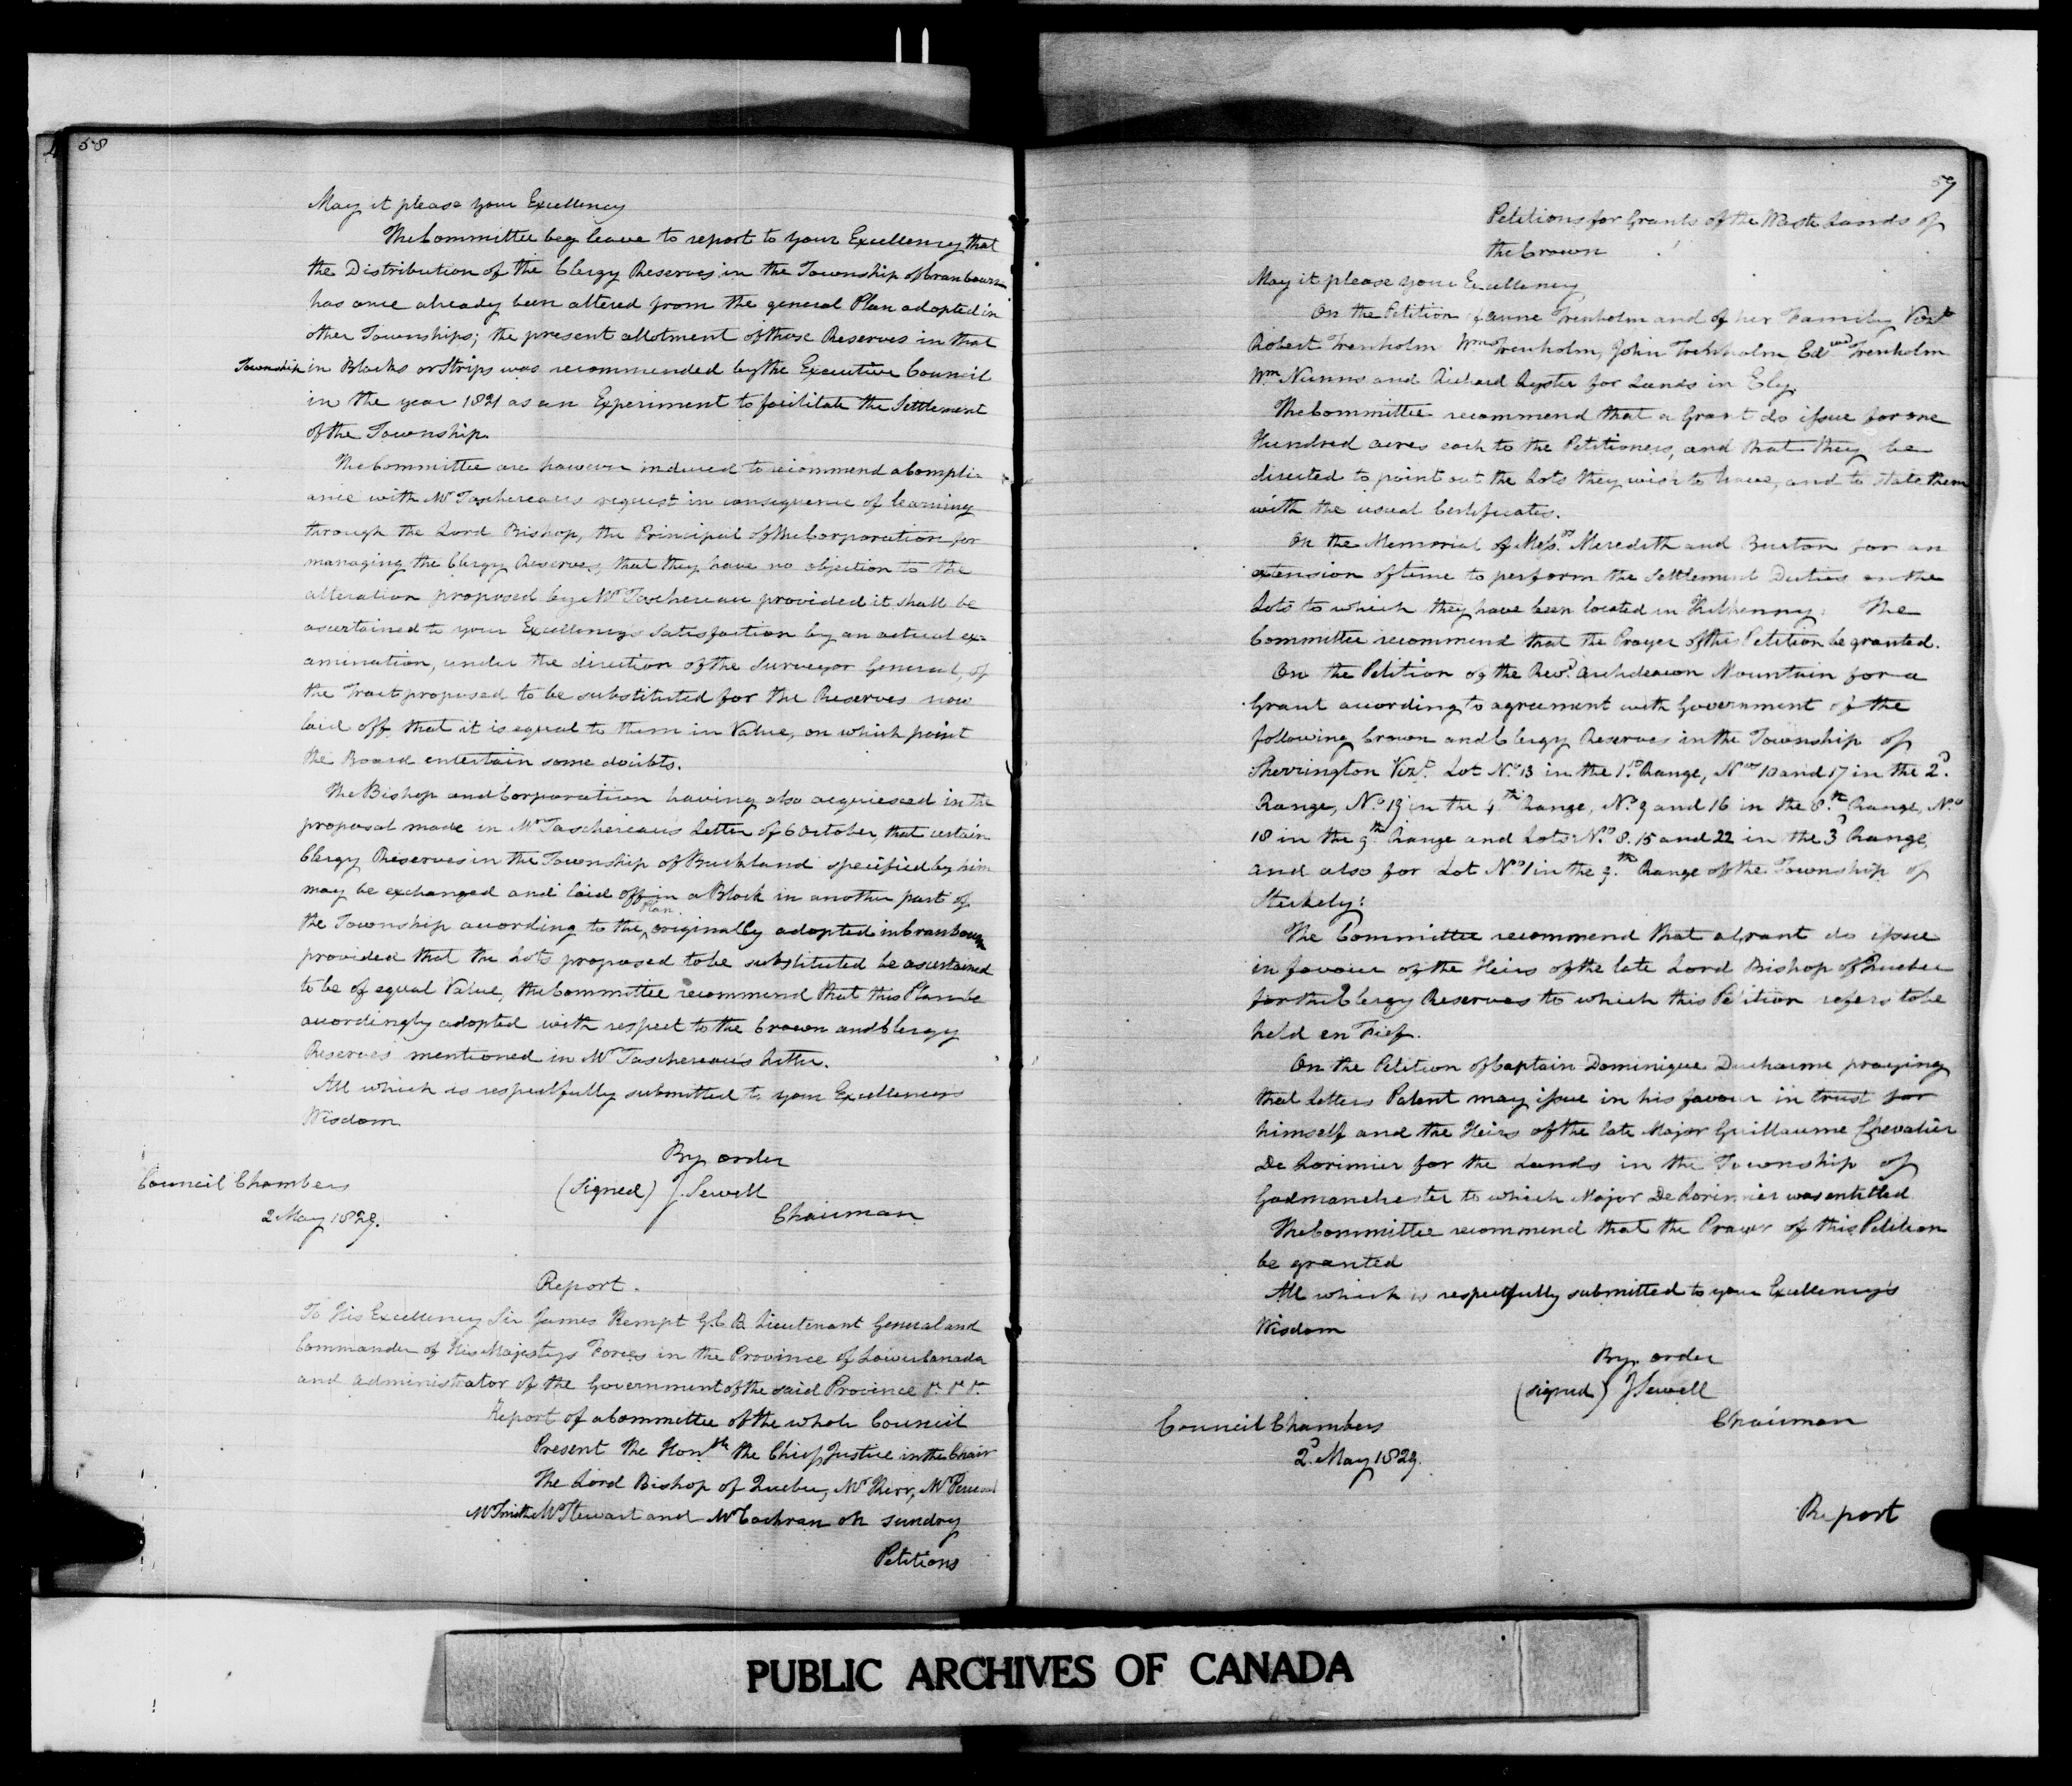 58
May it please your Excellency
The Committee beg leave to report to your Excellency that
the Distribution of the Clergy Reserves in the Township of Cranbourn
has once already been altered from the general Plan adopted in
other Townships; the present allotment of those Reserves in that
Township in Blocks or Strips was recommended by the Executive Council
in the year 1821 as an Experiment to facilitate the Settlement
of the Township.
The Committee are however induced to recommend a compli-
ance with Mr Taschereau's request in consequence of learning
through the Lord Bishop, the Principal of the Corporation for
managing the Clergy Reserves, that they have no objection to the
alteration proposed by Mr Taschereau provided it shall be
ascertained to your Excellency's Satisfaction by an actual ex-
amination, under the direction of the Surveyor General, of
the Tract proposed to be substituted for the Reserves now
laid off that it is equal to them in Value, on which point
the Board entertain some doubts.
The Bishop and Corporation having also acquiesced in the
proposal made in Mr Taschereau's Letter of 6 October, that certain
Clergy Reserves in the Township of Buckland specified by him
may be exchanged and laid off in a Block in another part of
the Township according to the Plan originally adopted in Cranbourn
provided that the Lots proposed to be substituted be ascertained
to be of equal Value, the Committee recommend that this Plan be
accordingly adopted with respect to the Crown and Clergy
Reserves mentioned in Mr Taschereau's Letter.
All which is respectfully submitted to your Excellency's
Wisdom
By order
(signed) J. Sewell
Chairman
Council Chambers
2 May 1829.
Report.
To His Excellency Sir James Kempt G.C.B. Lieutenant General and
Commander of His Majestys Forces in the Province of Lower Canada
and Administrator of the Government of the said Province &c. &c. &c.
Report of a Committee of the whole Council
Present the Honble the Chief Justice in the Chair
The Lord Bishop of Quebec, Mr Kerr, Mr Perceval
Mr Smith Mr Stewart and Mr Cochran on sundry
Petitions
59
Petitions for Grants of the Waste Lands of
the Crown
May it please your Excellency
On the Petition of Anne Trenholm and of her Family Vizt
Robert Trenholm Wm Trenholm, John Trenholm Edwd Trenholm
Wm Nunns and Richard Oyster for Lands in Ely.
The Committee recommend that a Grant do issue for one
Hundred acres each to the Petitioners, and that they be
directed to point out the Lots they wish to have, and to State them
with the usual Certificates.
On the Memorial of Messrs Meredith and Burton for an
extension of time to perform the Settlement Duties on the
Lots to which they have been located in Kilkenny: The
Committee recommend that the Prayer of this Petition be granted.
On the Petition of the Revd. Archdeacon Mountain for a
Grant according to agreement with Government of the
following Crown and Clergy Reserves in the Township of
Sherrington Vizt. Lot No. 13 in the 1st Range, Nos 10 and 17 in the 2d.
Range, No. 19 in the 4th Range, No. 9 and 16 in the 8th Range, No.
18 in the 9th Range and Lots No. 8. 15 and 22 in the 3d Range,
and also for Lot No. 1 in the 9th Range of the Township of
Stukely:
The Committee recommend that a Grant do issue
in favour of the Heirs of the late Lord Bishop of Quebec
for the Clergy Reserves to which this Petition refers to be
held en Fief.
On the Petition of Captain Dominique Ducharme praying
that Letters Patent may issue in his favour in trust for
himself and the Heirs of the late Major Guillaume Chevalier
De Lorimier for the Lands in the Township of
Godmanchester to which Major De Lorimier was entitled
The Committee recommend that the Prayer of this Petition
be granted
All which is respectfully submitted to your Excellency's
Wisdom
By order
(signed) J Sewell
Chairman
Council Chambers
2d. May 1829.
Report
PUBLIC ARCHIVES OF CANADA